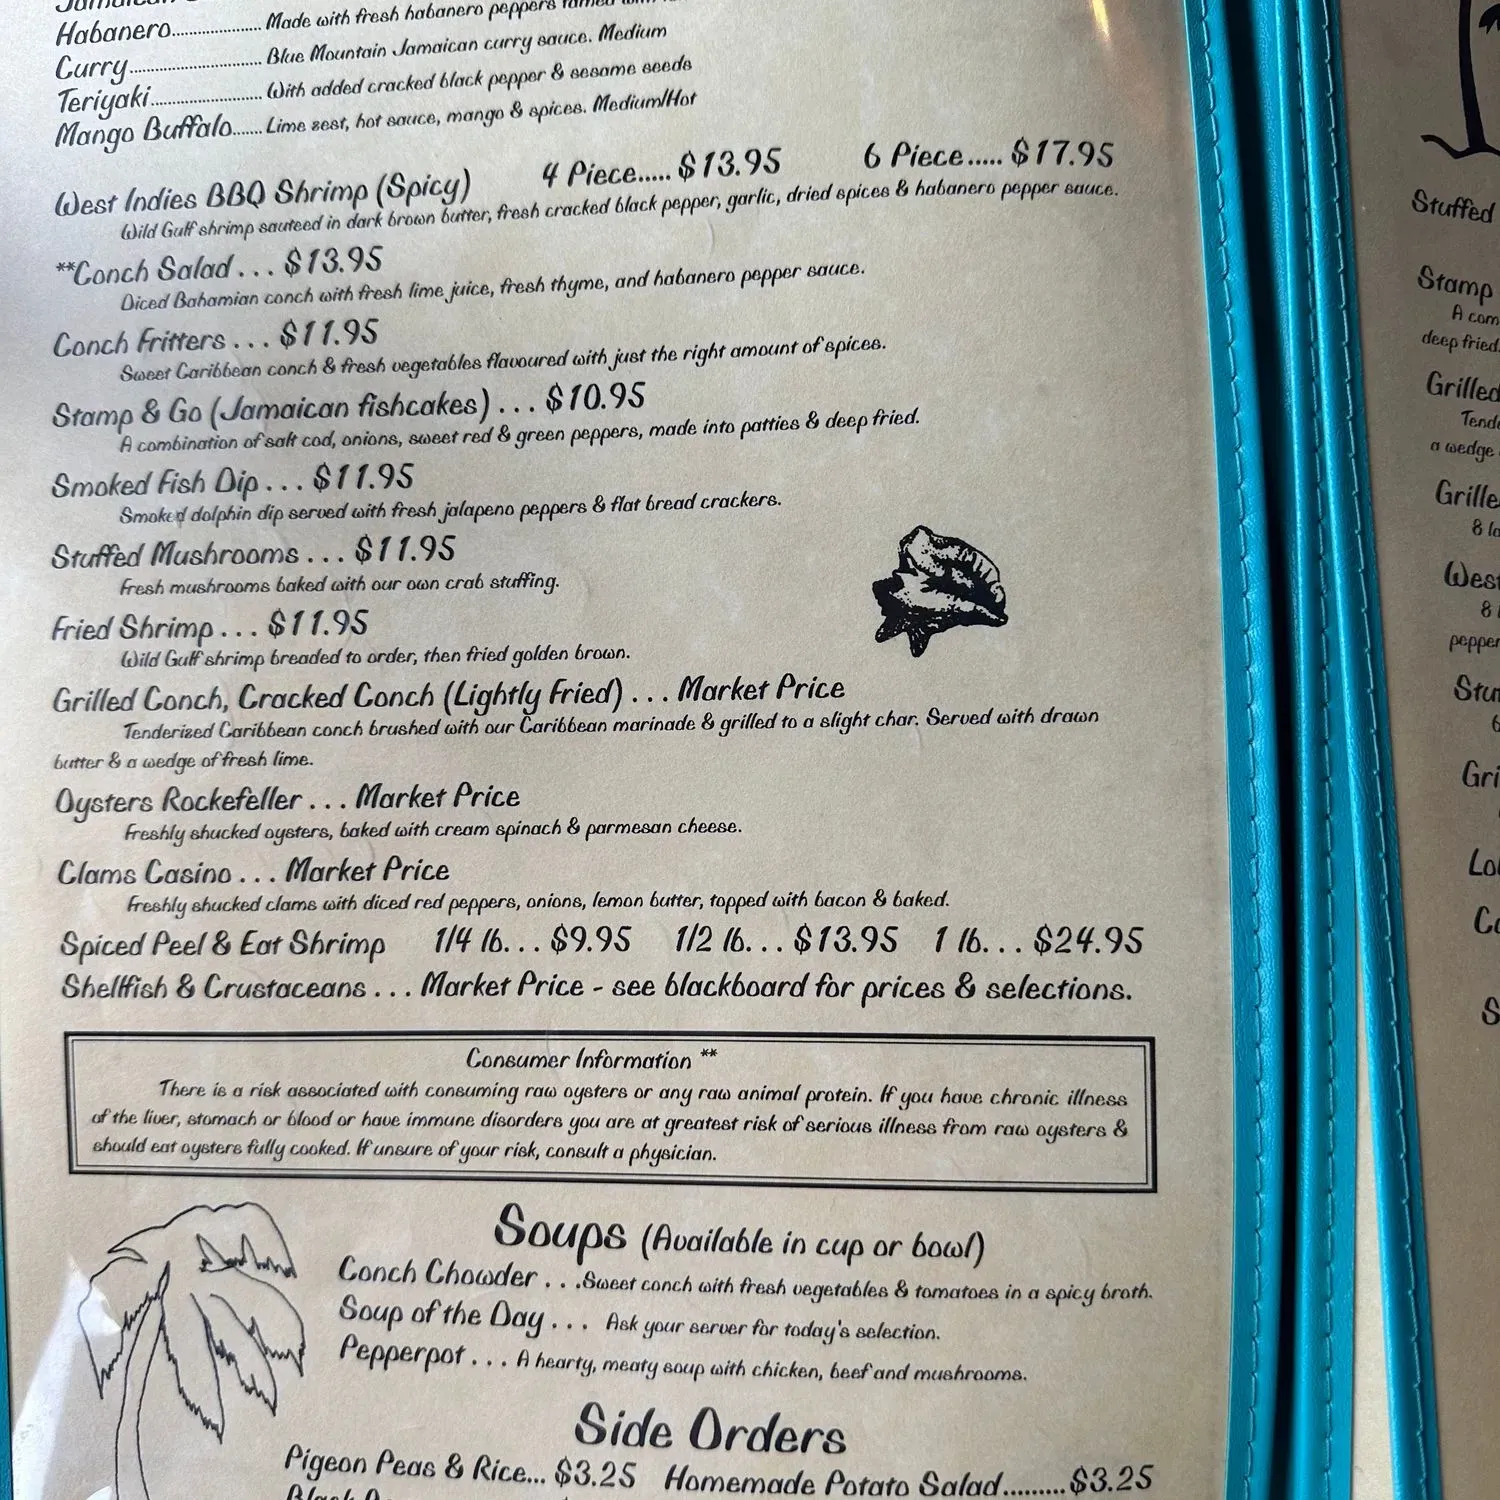 Habanero..................... Made with fresh habanero peppers
Curry............................... Blue Mountain Jamaican curry sauce. Medium
Teriyaki.......................... With added cracked black pepper & sesame seeds
Mango Buffalo....... Lime zest, hot sauce, mango & spices. Medium/Hot
West Indies BBQ Shrimp (Spicy) 4 Piece..... $13.95 6 Piece..... $17.95
Wild Gulf shrimp sauteed in dark brown butter, fresh cracked black pepper, garlic, dried spices & habanero pepper sauce.
**Conch Salad . . . $13.95
Diced Bahamian conch with fresh lime juice, fresh thyme, and habanero pepper sauce.
Conch Fritters . . . $11.95
Sweet Caribbean conch & fresh vegetables flavoured with just the right amount of spices.
Stamp & Go (Jamaican fishcakes) . . . $10.95
A combination of salt cod, onions, sweet red & green peppers, made into patties & deep fried.
Smoked Fish Dip . . . $11.95
Smoked dolphin dip served with fresh jalapeno peppers & flat bread crackers.
Stuffed Mushrooms . . . $11.95
Fresh mushrooms baked with our own crab stuffing.
Fried Shrimp . . . $11.95
Wild Gulf shrimp breaded to order, then fried golden brown.
Grilled Conch, Cracked Conch (Lightly Fried) . . . Market Price
Tenderized Caribbean conch brushed with our Caribbean marinade & grilled to a slight char. Served with drawn
butter & a wedge of fresh lime.
Oysters Rockefeller . . . Market Price
Freshly shucked oysters, baked with cream spinach & parmesan cheese.
Clams Casino . . . Market Price
Freshly shucked clams with diced red peppers, onions, lemon butter, topped with bacon & baked.
Spiced Peel & Eat Shrimp 1/4 lb. . . $9.95 1/2 lb. . . $13.95 1 lb. . . $24.95
Shellfish & Crustaceans . . . Market Price - see blackboard for prices & selections.
Consumer Information **
There is a risk associated with consuming raw oysters or any raw animal protein. If you have chronic illness
of the liver, stomach or blood or have immune disorders you are at greatest risk of serious illness from raw oysters &
should eat oysters fully cooked. If unsure of your risk, consult a physician.
Soups (Available in cup or bowl)
Conch Chowder . . .Sweet conch with fresh vegetables & tomatoes in a spicy broth.
Soup of the Day . . . Ask your server for today's selection.
Pepperpot . . . A hearty, meaty soup with chicken, beef and mushrooms.
Side Orders
Pigeon Peas & Rice... $3.25 Homemade Potato Salad.........$3.25
Stuffed
Stamp
A com
deep fried.
Grilled
a wedge
8
West
8
6